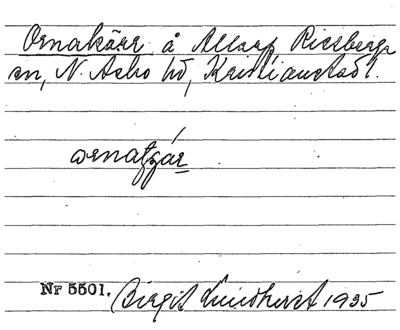 Ornakärr å Allarp Riseberga
sn, N. Åsbo hd, Kristianstad l.
Nr 5501. Birgit Lindkvist 1935